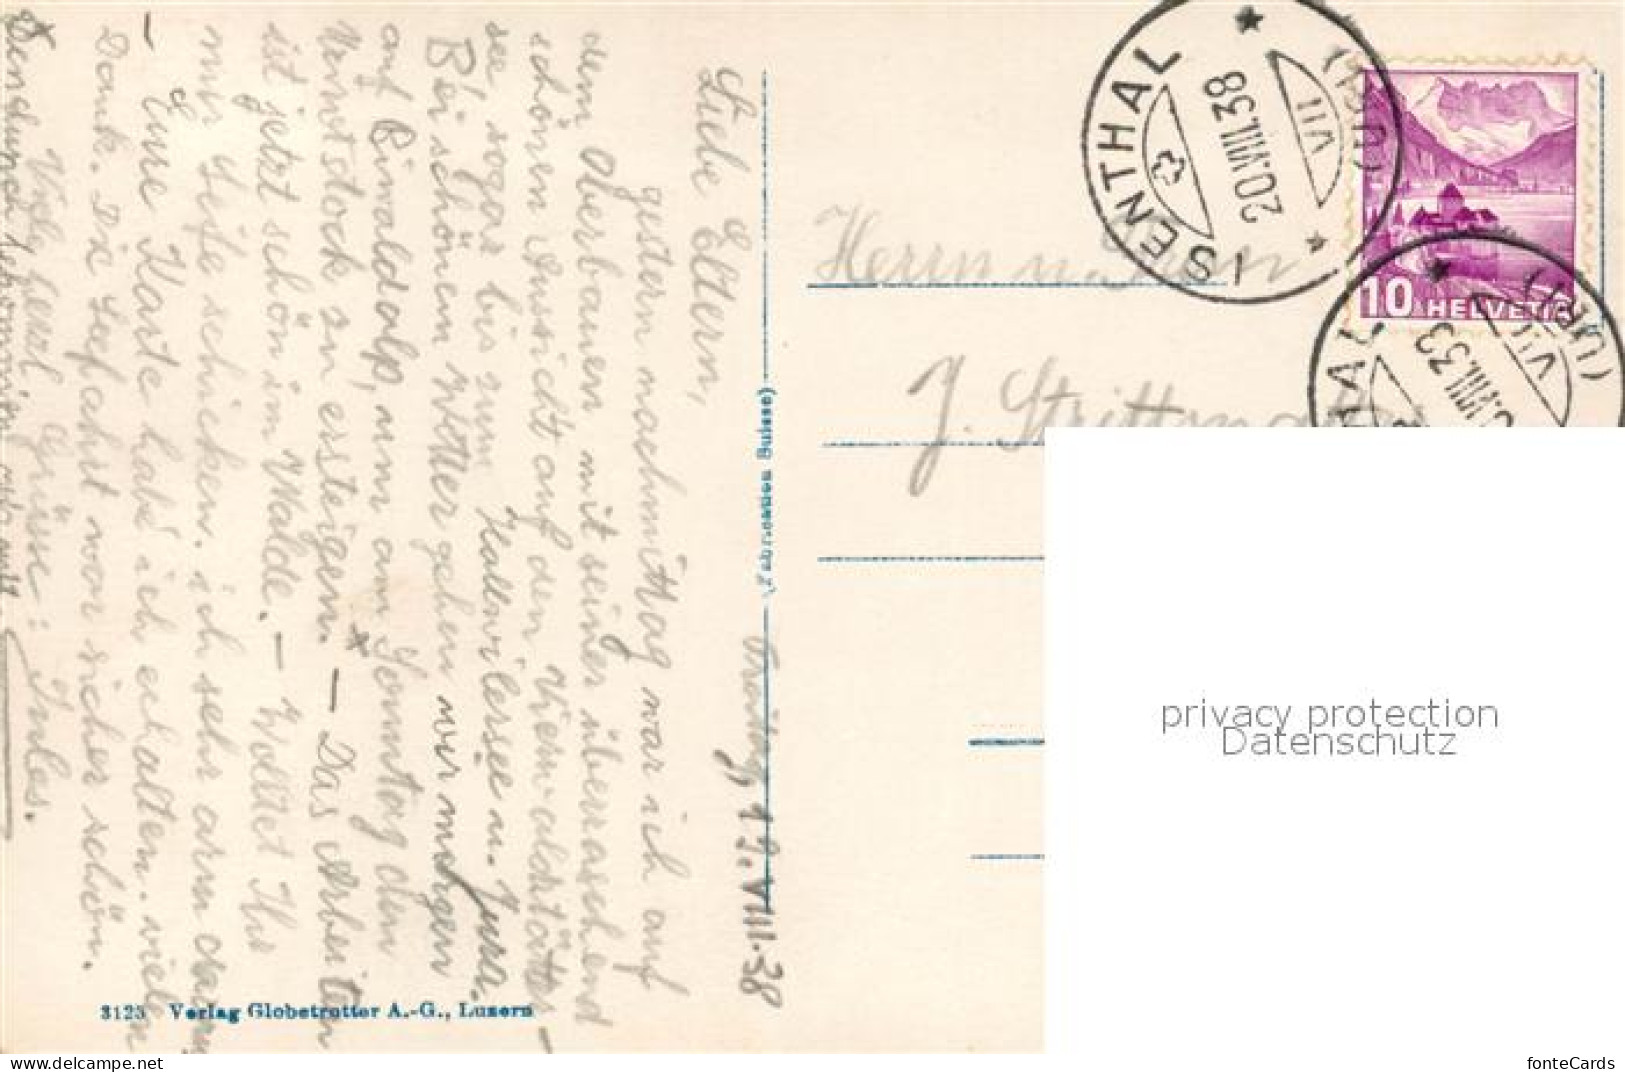 Freitag, 19. VIII. 38
Liebe Eltern,
gestern nachmittag war ich auf
dem Oberbauen mit seiner überraschend
schönen Aussicht auf den Vierwaldstätter-
see sogar bis zum Hallwilersee u. Jura.
Bei schönem Wetter gehen wir morgen
auf Bimaldalp, um am Sonntag den
Urirotstock zu ersteigen. — Das Arbeiten
ist jetzt schön im Walde. — Wolltet Ihr
mir Seife schicken. ich sehr arm daran
— Eure Karte habe ich erhalten. vielen
Dank. Die Seefahrt war sicher schön.
Viele herzl. Grüsse: Jules.
Herrn u. Frau
J. Strittma
ISENTHAL (URI)
20.VIII.38
VII
HAL (URI)
VIII.38
VII
10 HELVETIA
(Fabrication Suisse)
3125 Verlag Globetrotter A.-G., Luzern
privacy protection
Datenschutz
fonteCards